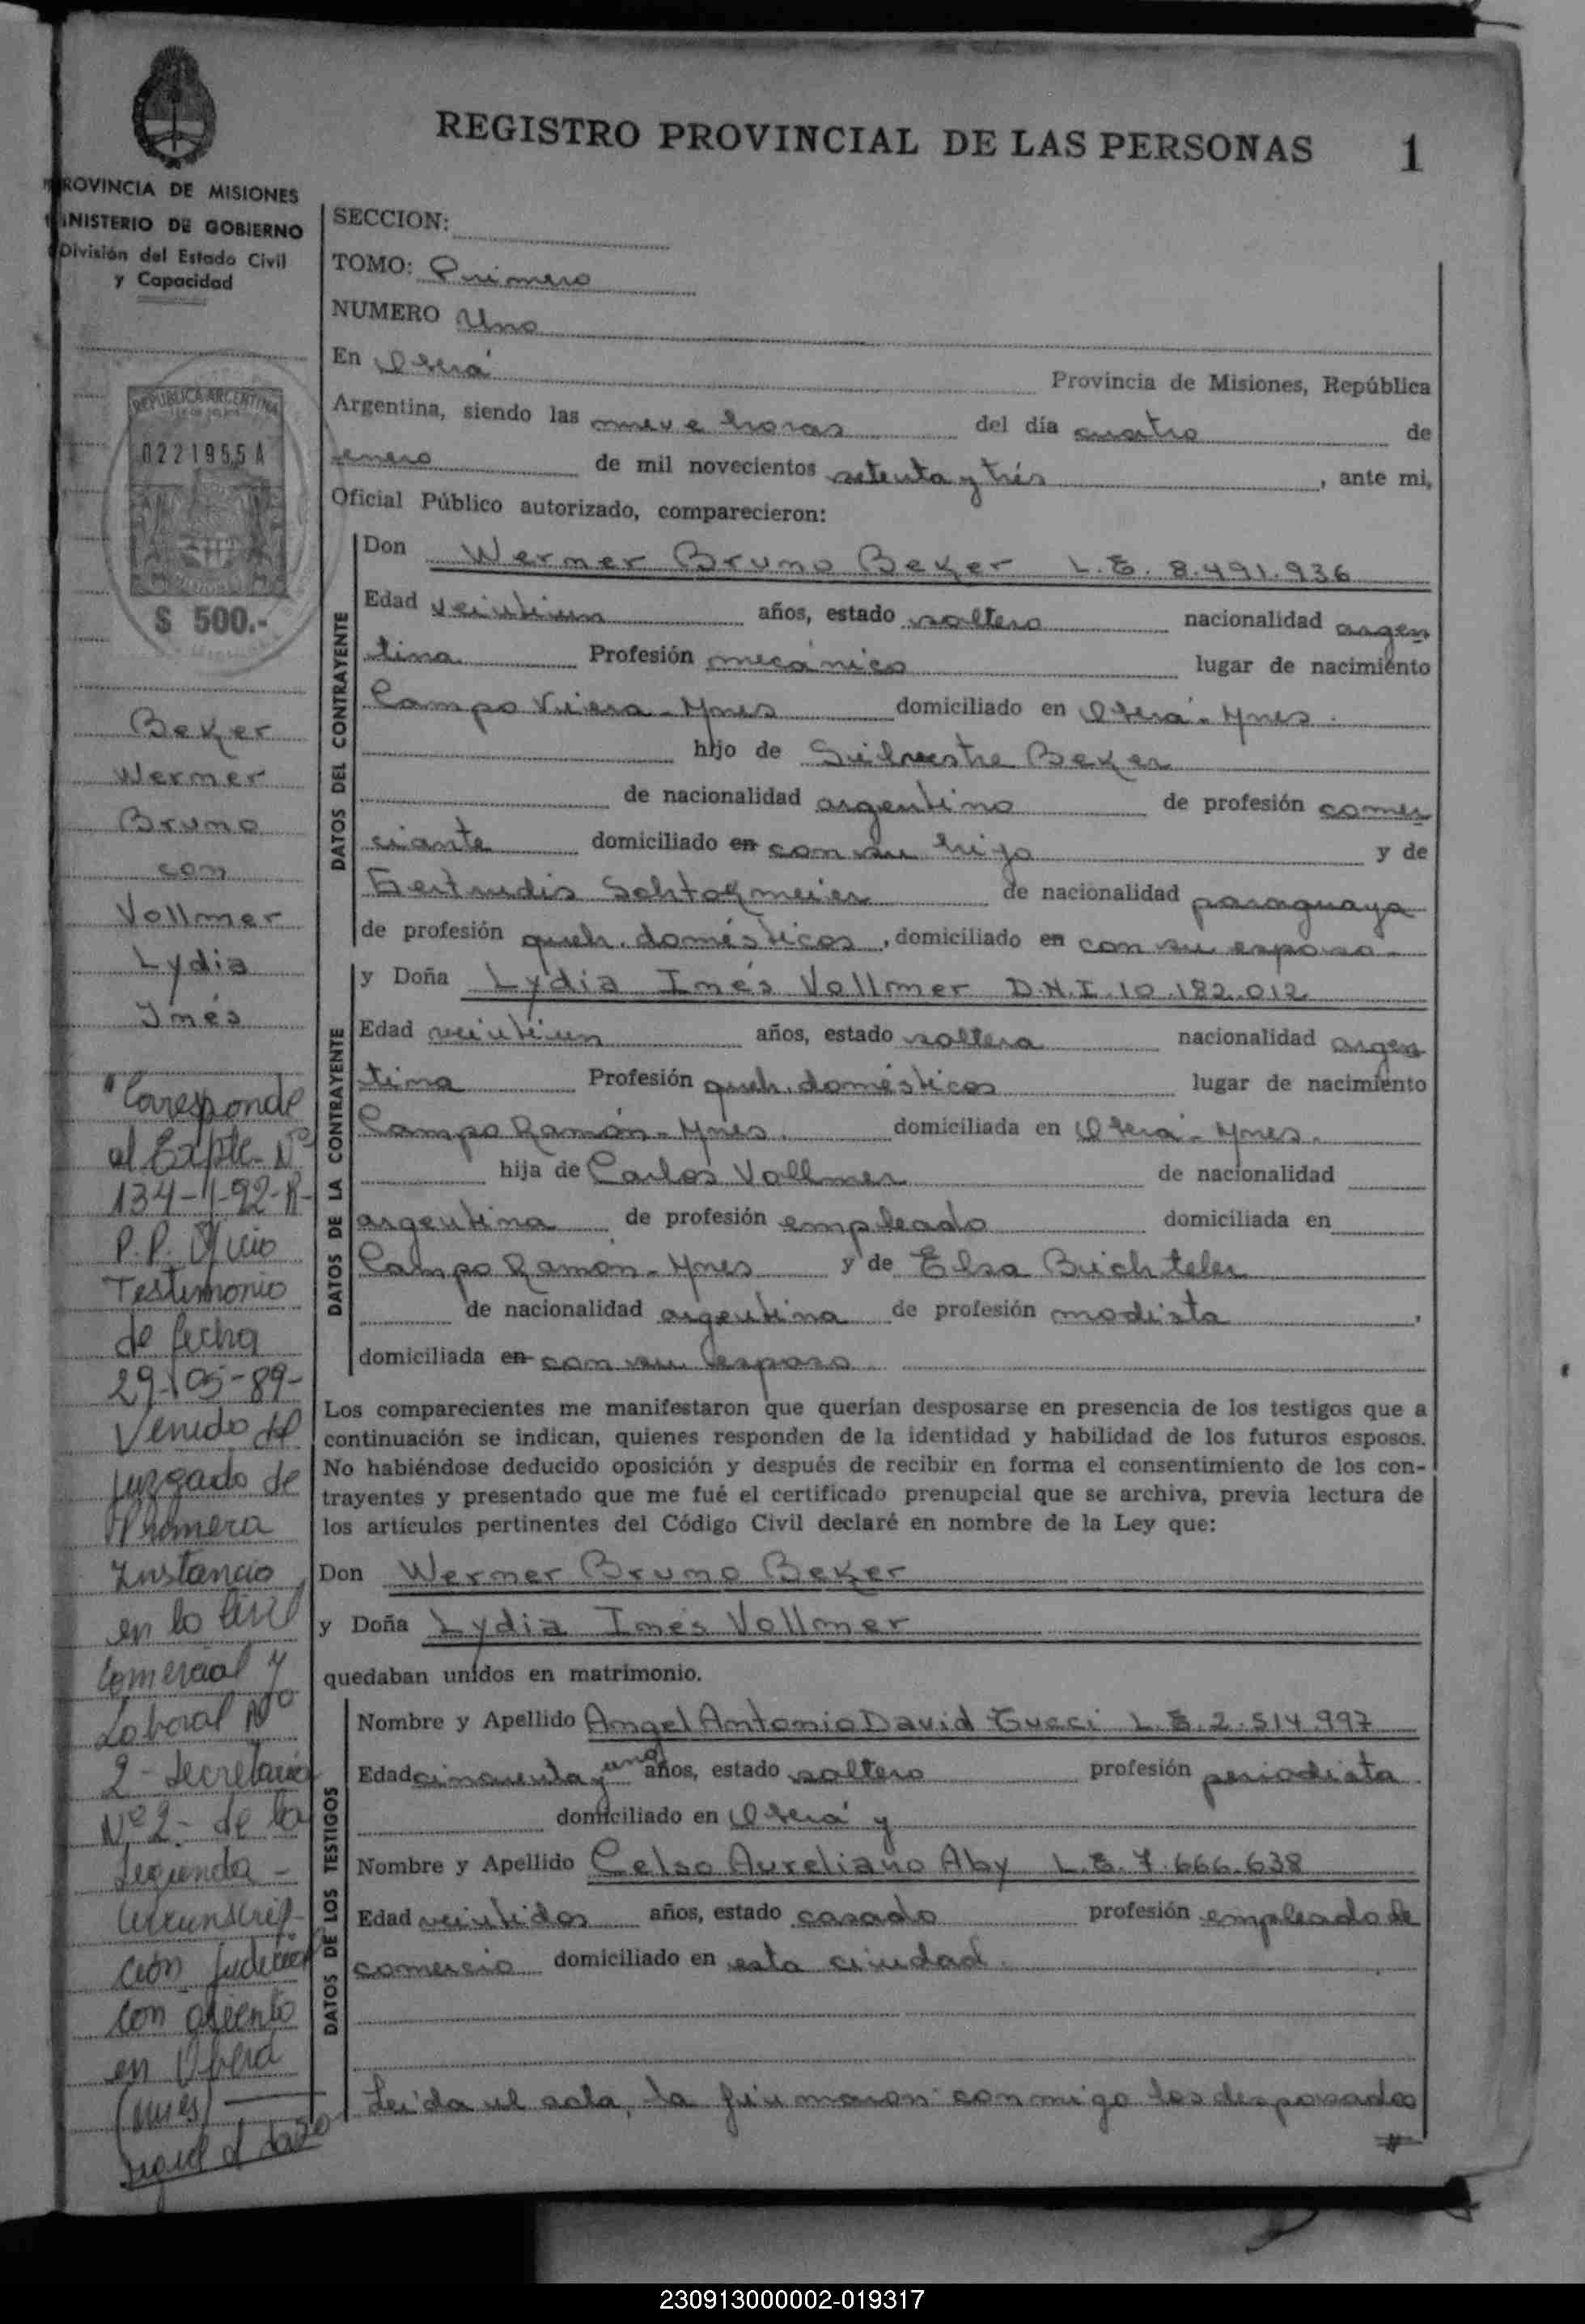 REGISTRO PROVINCIAL DE LAS PERSONAS 1
PROVINCIA DE MISIONES
MINISTERIO DE GOBIERNO
División del Estado Civil
y Capacidad
REPUBLICA ARGENTINA
0221955 A
$ 500.-
Beker
Wermer
Bruno
con
Vollmer
Lydia
Inés
"Corresponde
al Expte. Nº
134-
P.P. Oficio
Testimonio
de fecha
29-05-89-
Venido del
juzgado de
Primera
Instancia
en lo Civil
Comercial y
Laboral Nº
2- Secretaría
Nº 2- de la
Segunda -
Circunscrip-
ción Judicial
con asiento
en Oberá
(Mnes)
SECCION:
TOMO: Primero
NUMERO Uno
En Oberá Provincia de Misiones, República
Argentina, siendo las nueve horas del día cuatro de
enero de mil novecientos setenta y trés, ante mi,
Oficial Público autorizado, comparecieron:
DATOS DEL CONTRAYENTE
Don Wermer Bruno Beker L.E. 8.491.936
Edad veintiun años, estado soltero nacionalidad argen
tina Profesión mecánico lugar de nacimiento
Campo Viera - Mnes domiciliado en Oberá - Mnes.
hijo de Silvestre Beker
de nacionalidad argentino de profesión comer
ciante domiciliado en con su hijo y de
Gertrudis de nacionalidad paraguaya
de profesión queh. domésticos, domiciliado en con su esposo.
DATOS DE LA CONTRAYENTE
y Doña Lydia Inés Vollmer D.N.I. 10.182.012
Edad veintiun años, estado soltera nacionalidad argen
tina Profesión queh. domésticos lugar de nacimiento
Campo Ramón - Mnes. domiciliada en Oberá - Mnes.
hija de Carlos Vollmer de nacionalidad
argentina de profesión empleado domiciliada en
Campo Ramón - Mnes y de Elsa Buchteler
de nacionalidad argentina de profesión modista,
domiciliada en con su esposo.
Los comparecientes me manifestaron que querían desposarse en presencia de los testigos que a
continuación se indican, quienes responden de la identidad y habilidad de los futuros esposos.
No habiéndose deducido oposición y después de recibir en forma el consentimiento de los con-
trayentes y presentado que me fué el certificado prenupcial que se archiva, previa lectura de
los artículos pertinentes del Código Civil declaré en nombre de la Ley que:
Don Wermer Bruno Beker
y Doña Lydia Inés Vollmer
quedaban unidos en matrimonio.
DATOS DE LOS TESTIGOS
Nombre y Apellido Angel Antonio David Gucci L.E. 2.514.997
Edad cincuenta y uno años, estado soltero profesión periodista
domiciliado en Oberá y
Nombre y Apellido Celso Aureliano Aby L.E. 7.666.638
Edad veintidos años, estado casado profesión empleado de
comercio domiciliado en esta ciudad.
Leída el acta, la firmaron conmigo los desposados
230913000002-019317